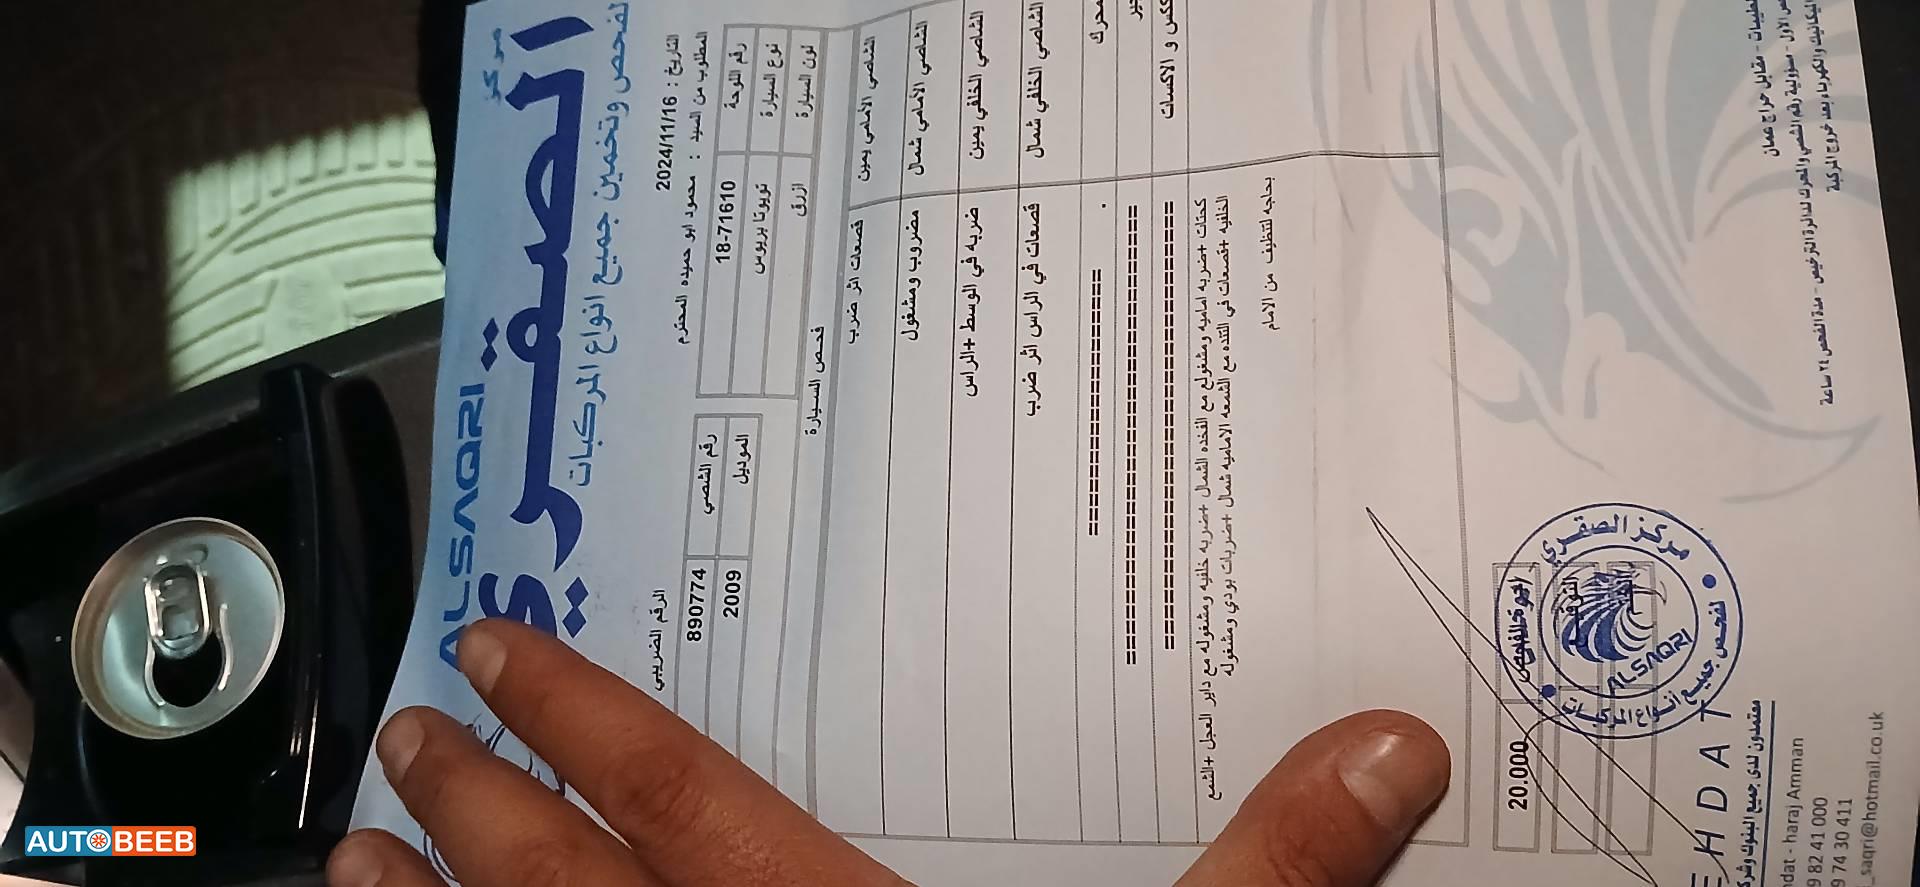 مركز
ALSAQRI
الصقري
لفحص وتخمين جميع انواع المركبات
التاريخ : 2024/11/16
الرقم الضريبي
المطلوب من السيد : محمود ابو حميده المحترم
رقم اللوحة 18-71610 رقم الشصي 890774
نوع السيارة تويوتا بريوس الموديل 2009
لون السيارة ازرق
فحص السيارة
الشاصي الأمامي يمين قصعات اثر ضرب
الشاصي الأمامي شمال مضروب ومشغول
الشاصي الخلفي يمين ضربه في الوسط +الراس
الشاصي الخلفي شمال قصعات في الراس اثر ضرب
محرك . ====================
جير ====================
و الاكسات ====================
كحتات +ضربه اماميه ومشغوله مع الفخده الشمال +ضربه خلفيه ومشغوله مع داير العجل +الشمع
الخلفيه +قصعات في التنده مع الشمعه الاماميه شمال +ضربات بودي ومشغوله
بحاجه لتنظيف من الامام
20.000
مركز الصقري
ALSAQRI
لفحص جميع انواع المركبات
EHDAT
معتمدون لدى جميع البنوك وشرك
مقابل حراج عمان
ndat - haraj Amman
ص الاول - مسؤولية رقم الشصي والمحرك لدائرة الترخيص - مدة الفحص ٢٤ ساعة
9 82 41 000
الميكانيك والكهرباء بعد خروج المركبة
9 74 30 411
_saqri@hotmail.co.uk
AUTOBEEB